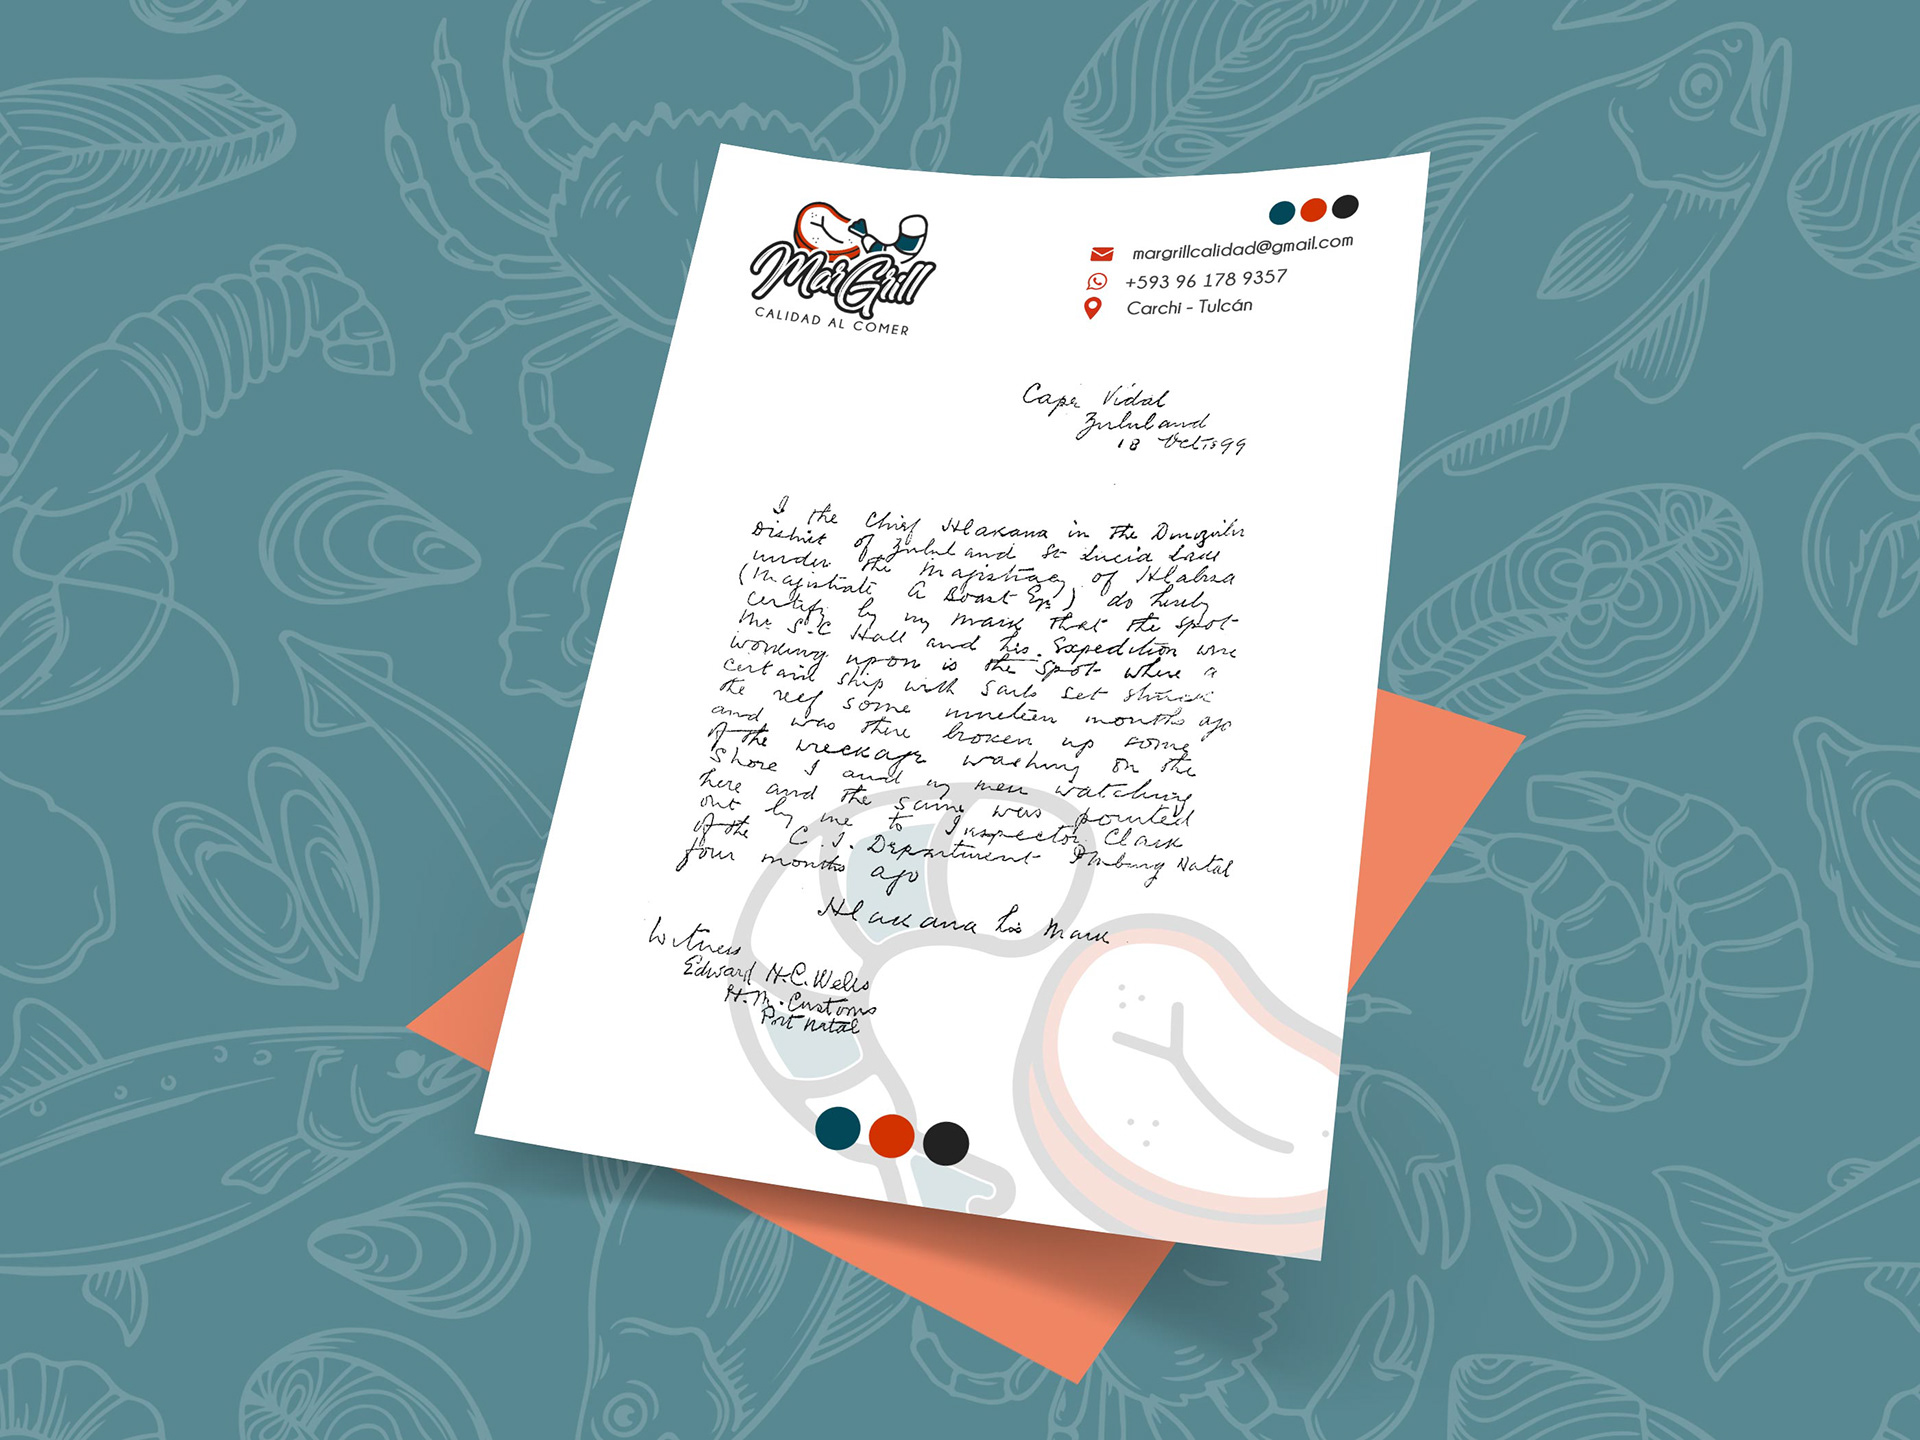 MarGrill
CALIDAD AL COMER
margrillcalidad@gmail.com
+593 96 178 9357
Carchi - Tulcán
Cape Vidal
Zululand
18 Oct 1899
I the Chief Hlakana in the
District of Zululand St Lucia Lake
under the Magistracy of Hlabisa
(Magistrate A Boast Esq) do hereby
certify by my mark that the spot
Mr S.C Hall and his Expedition were
working upon is the spot where a
certain ship with sails set struck
the reef some nineteen months ago
and was there broken up some
of the wreckage washing on the
Shore I and my men watching
here and the same was pointed
out by me to Inspector Clark
of the C.I. Department PMburg Natal
four months ago
Hlakana his Mark
Witness
Edward H.C. Wells
H.M. Customs
Port Natal